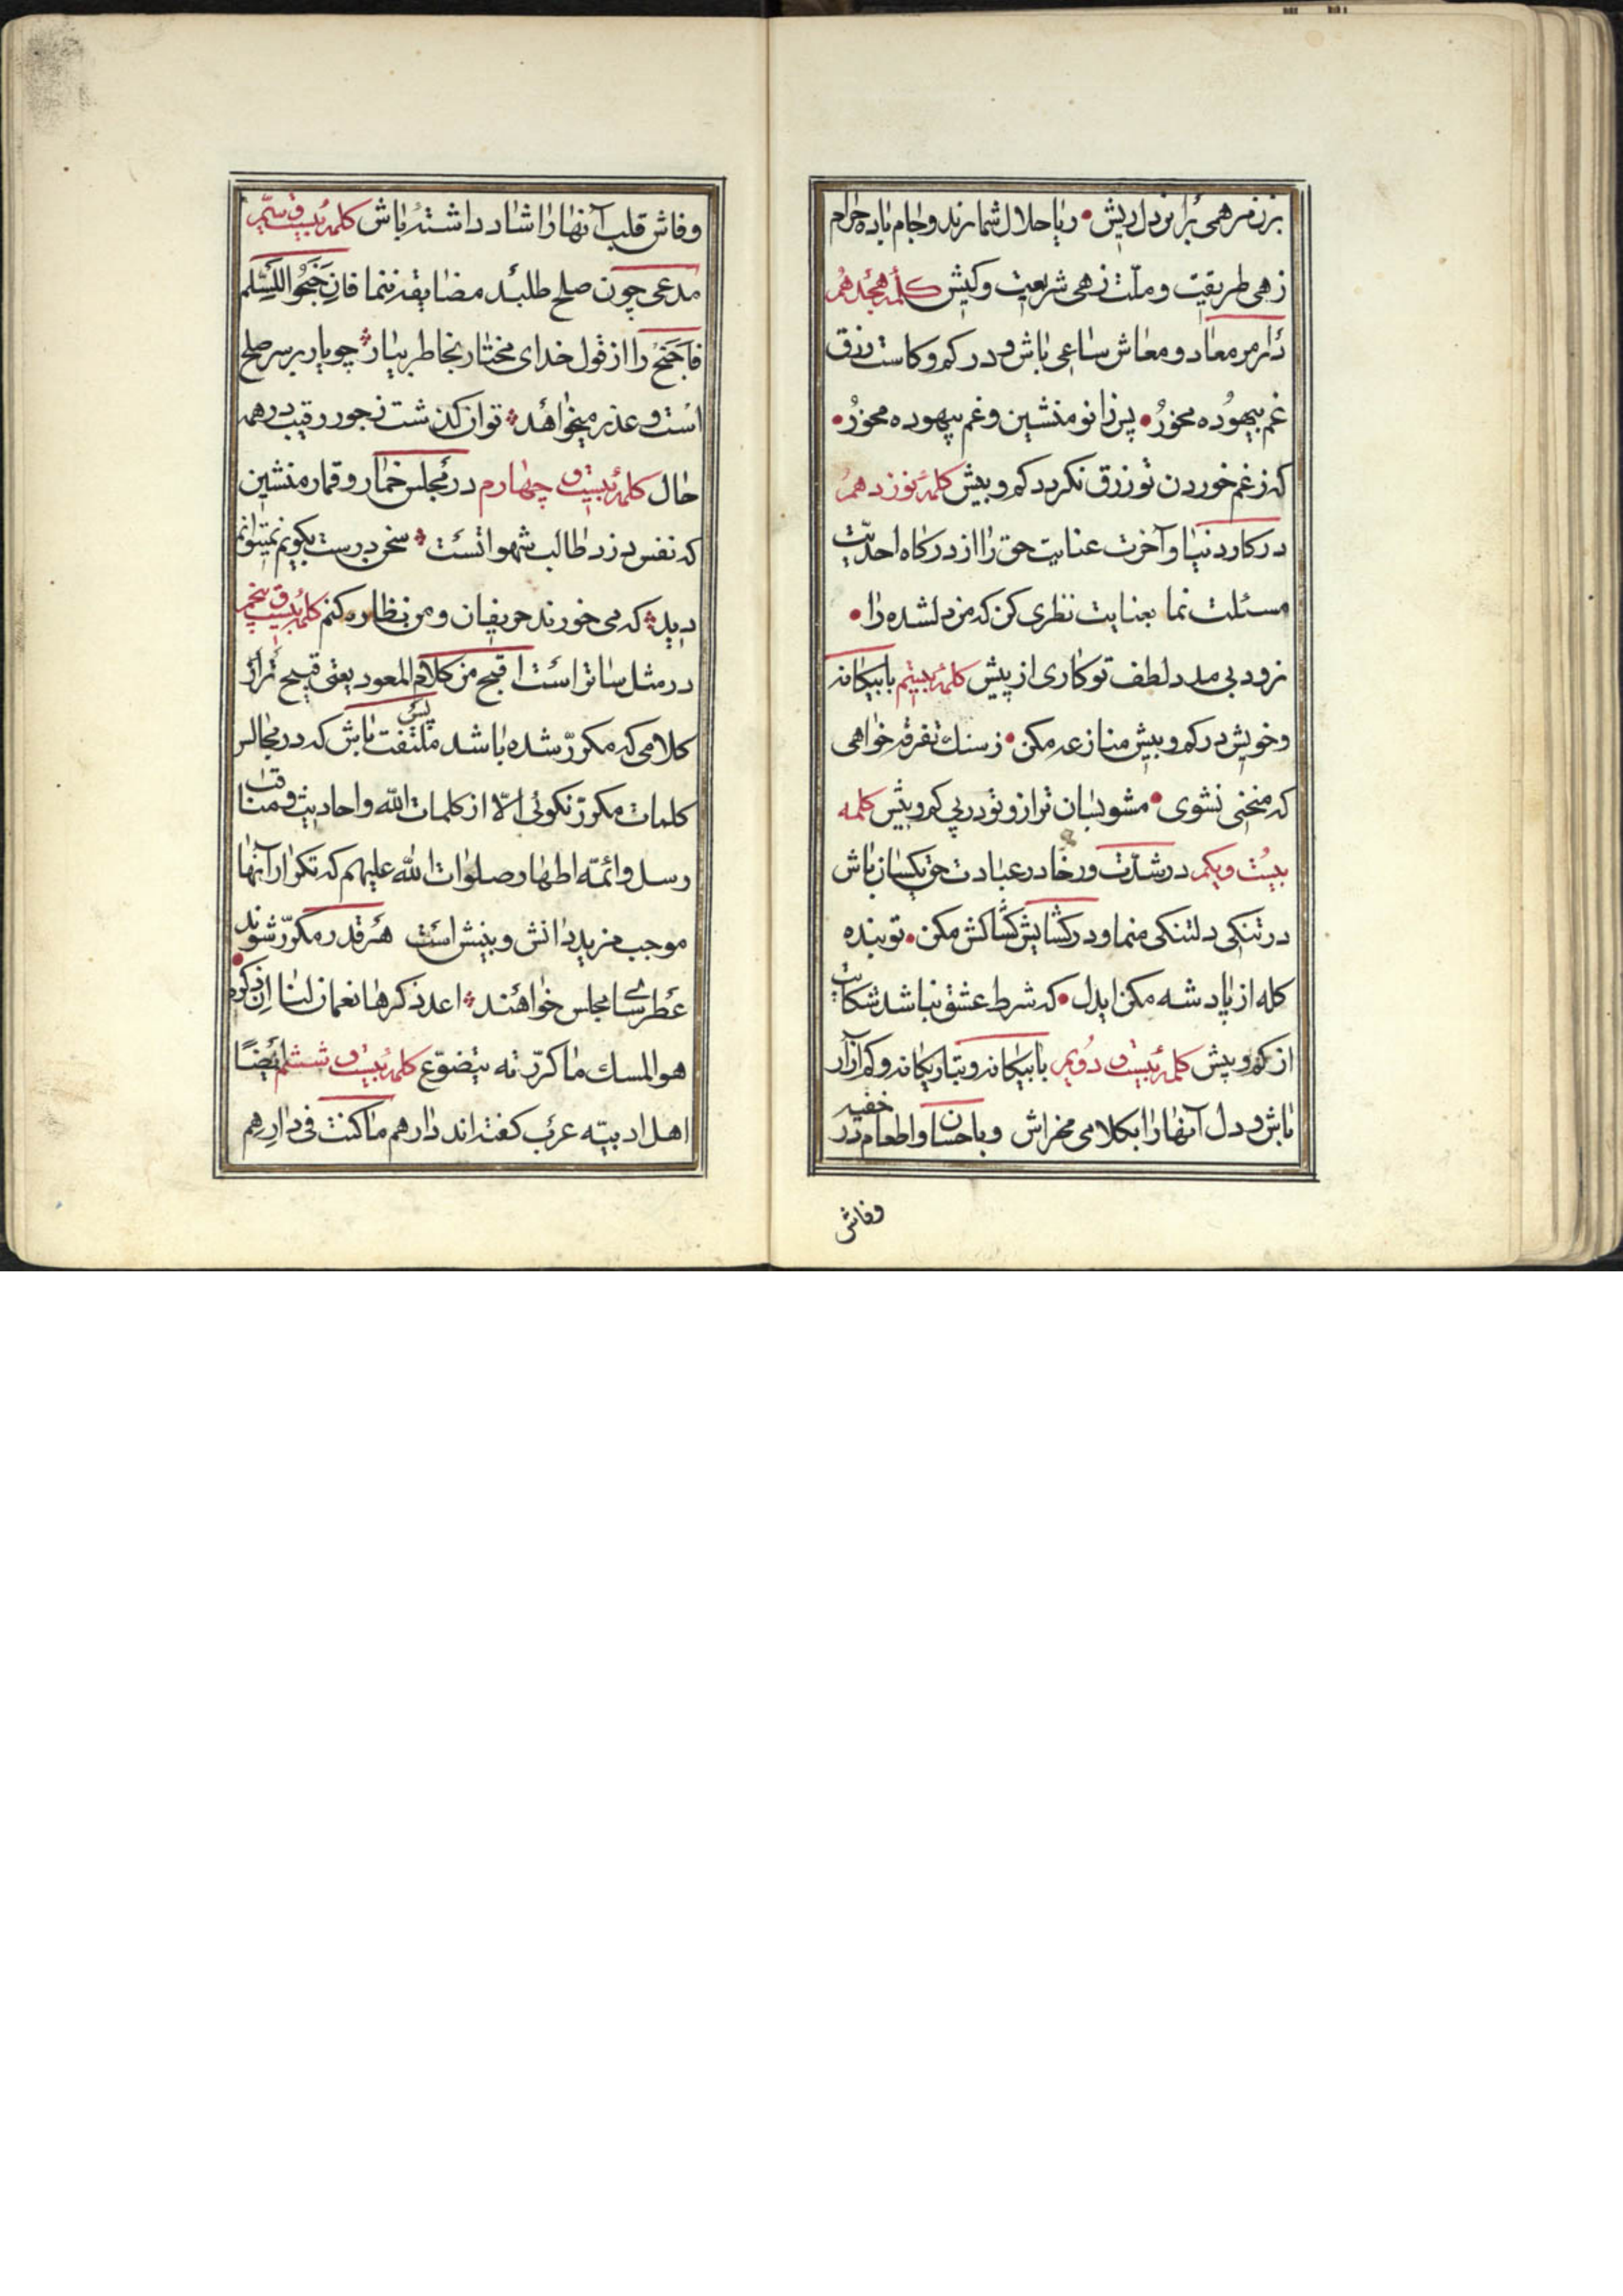 بزن مرهمی برین دل ریش • ریا حلال شمارند و جام باده حرام
زهی طریقت و ملّت زهی شریعت و کیش کلمهٔ هجدهم
در امر معاد و معاش ساعی باش و در کم و کاست رزق
غم بیهوده مخور • پس زانو منشین و غم بیهوده مخور •
که ز غم خوردن تو رزق نکردد کم و بیش کلمهٔ نوزدهم
در کار دنیا و آخرت عنایت حق را از درکاه احدیّت
مسئلت نما بعنایت نظری کن که من دلشده را •
نرود بی مدد لطف تو کاری از پیش کلمهٔ بیستم با بیکانه
و خویش در کم و بیش منازعه مکن • ز سنك تفرقه خواهی
که منحنی نشوی • مشو بسان ترازو تو در پی کم و بیش کلمه
بیست و یکم در شدّت و رخا در عبادت حق یکسان باش
در تنکی دلتنکی منما و در کشایش کشاکش مکن • تو بنده
کله از پادشه مکن ایدل • که شرط عشق نباشد شکایت
از کم و بیش کلمهٔ بیست و دویم با بیکانه و یکانه و کم آزار
باش و دل آنها را بکلامی مخراش و باحسان و اطعام در خفیه
وفاش
وفاش قلب آنها را شاد داشته باش کلمهٔ بیست و سیّم
مدعی چون صلح طلبد مضایقه ننما فان جنحوا للسّلم
فاجنح را از قول خدای مختار بخاطر بیار چو یار بر سر صلح
است و عذر میخواهد توان کذشت ز جور رقیب در همه
حال کلمهٔ بیست و چهارم در مجلس خمار و قمار منشین
که نفس دزد طالب شهواتست سخن درست بکویم نمیتوانم
دید که می خورند حریفان و من نظاره کنم کلمهٔ بیست و پنجم
در مثل سائر است اقبح من کلام المعود یعنی قبیح تر از
کلامی که مکرّر شده باشد پس ملتفت باش که در مجالس
کلمات مکرّر نکوئی الّا از کلمات الله و احادیث و مناقب
رسل و ائمّه اطهار صلوات الله علیهم که تکرار آنها
موجب مزید دانش و بینش است هر قدر مکرّر شوند
عطر سای مجالس خواهند اعد ذکرها نعمان لنا ان ذکره •
هو المسك ما کرّرته یتضوّع کلمهٔ بیست و ششم ایضًا
اهل ادبیّه عرب کفته اند دارهم ما کنت فی دارهم